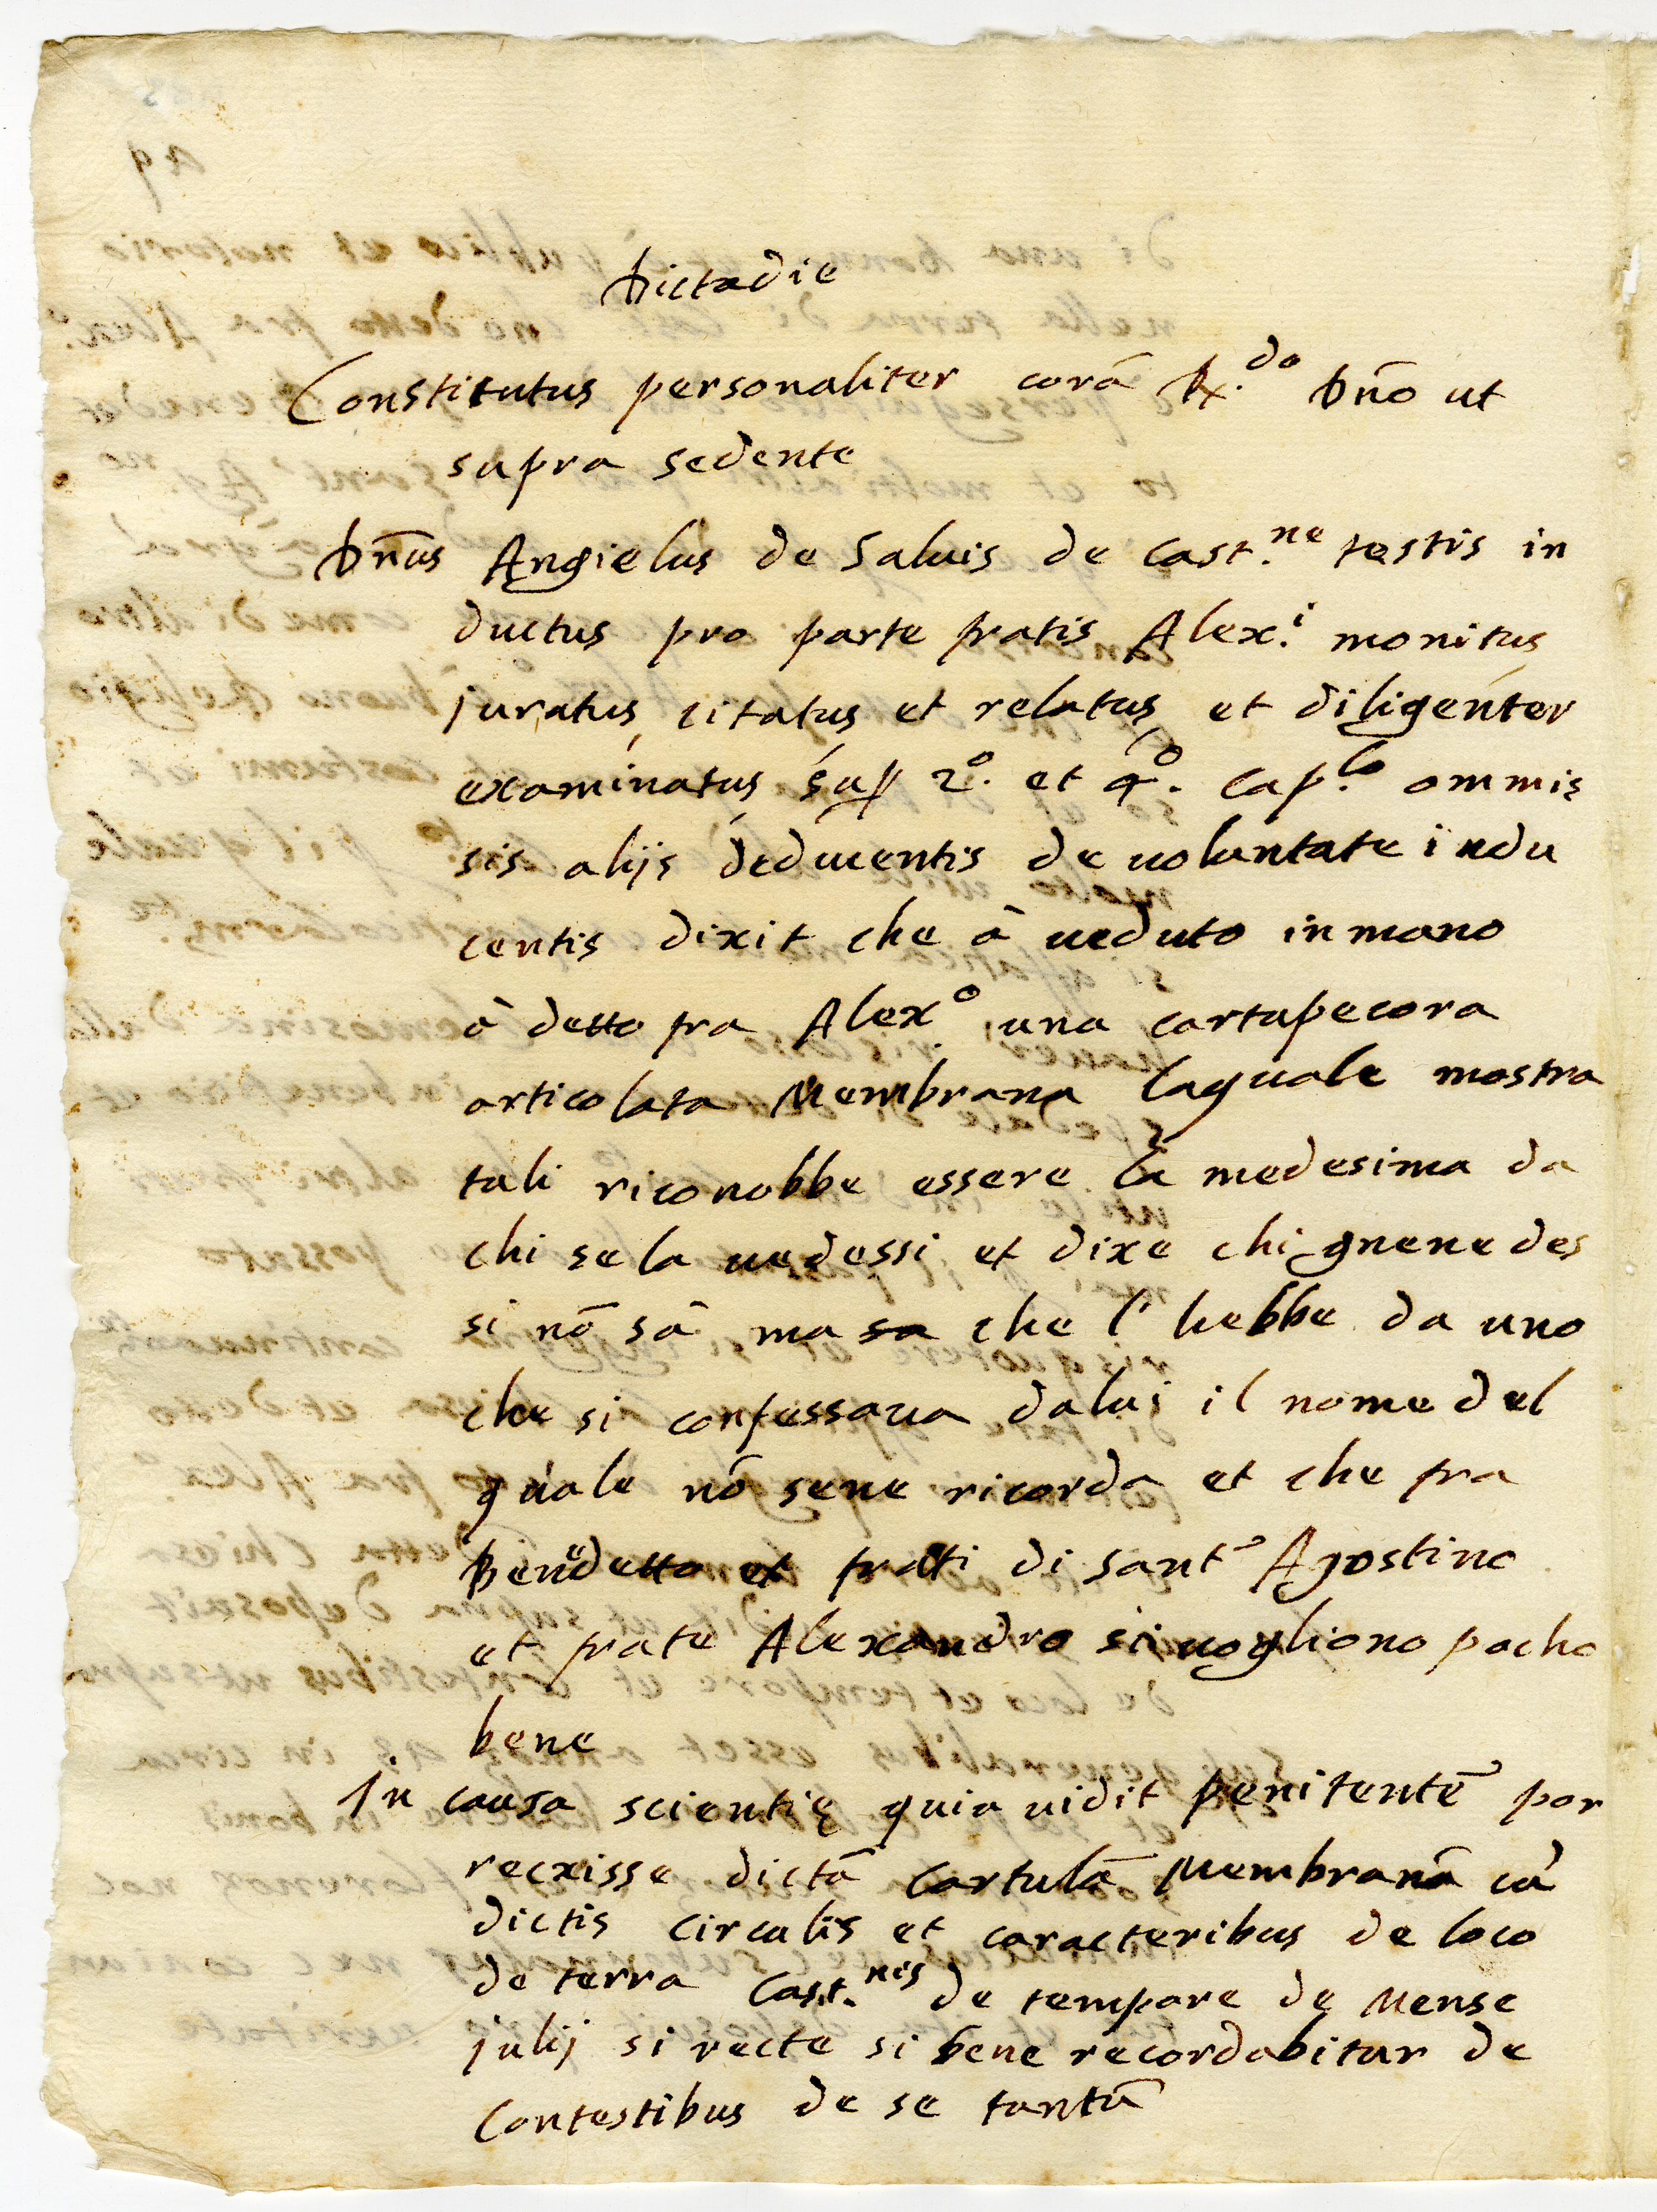 Dicta die
Constitutus personaliter corā R.do Dn̄o ut
supra sedente
Dn̄us Angielus de Saluis de Cast.ne testis in
ductus pro parte fratis Alex.i monitus
juratus citatus et relatus et diligenter
examinatus sup 2.o et 4.o Cap.lo ommis
sis alijs deducentis de uoluntate indu
centis dixit che à ueduto in mano
à detto fra Alex.o una cartapecora
articolata Membrana laquale mostra
tali riconobbe essere la medesima da
chi se la uedessi et dixe chi gnene des
si nō sà ma sa che l'hebbe da uno
che si confessaua da lui il nome del
quale nō sene ricorda et che fra
Benedetto et frati di sant' Agostino
et frate Alexandro si uogliono pocho
bene
In causa scientię quia uidit penitentē por
recxisse dictā Cartulā Membranā cū
dictis circulis et caracteribus de loco
de terra Cast.nis de tempore de Mense
julij si recte si bene recordabitur de
Contestibus de se tantū